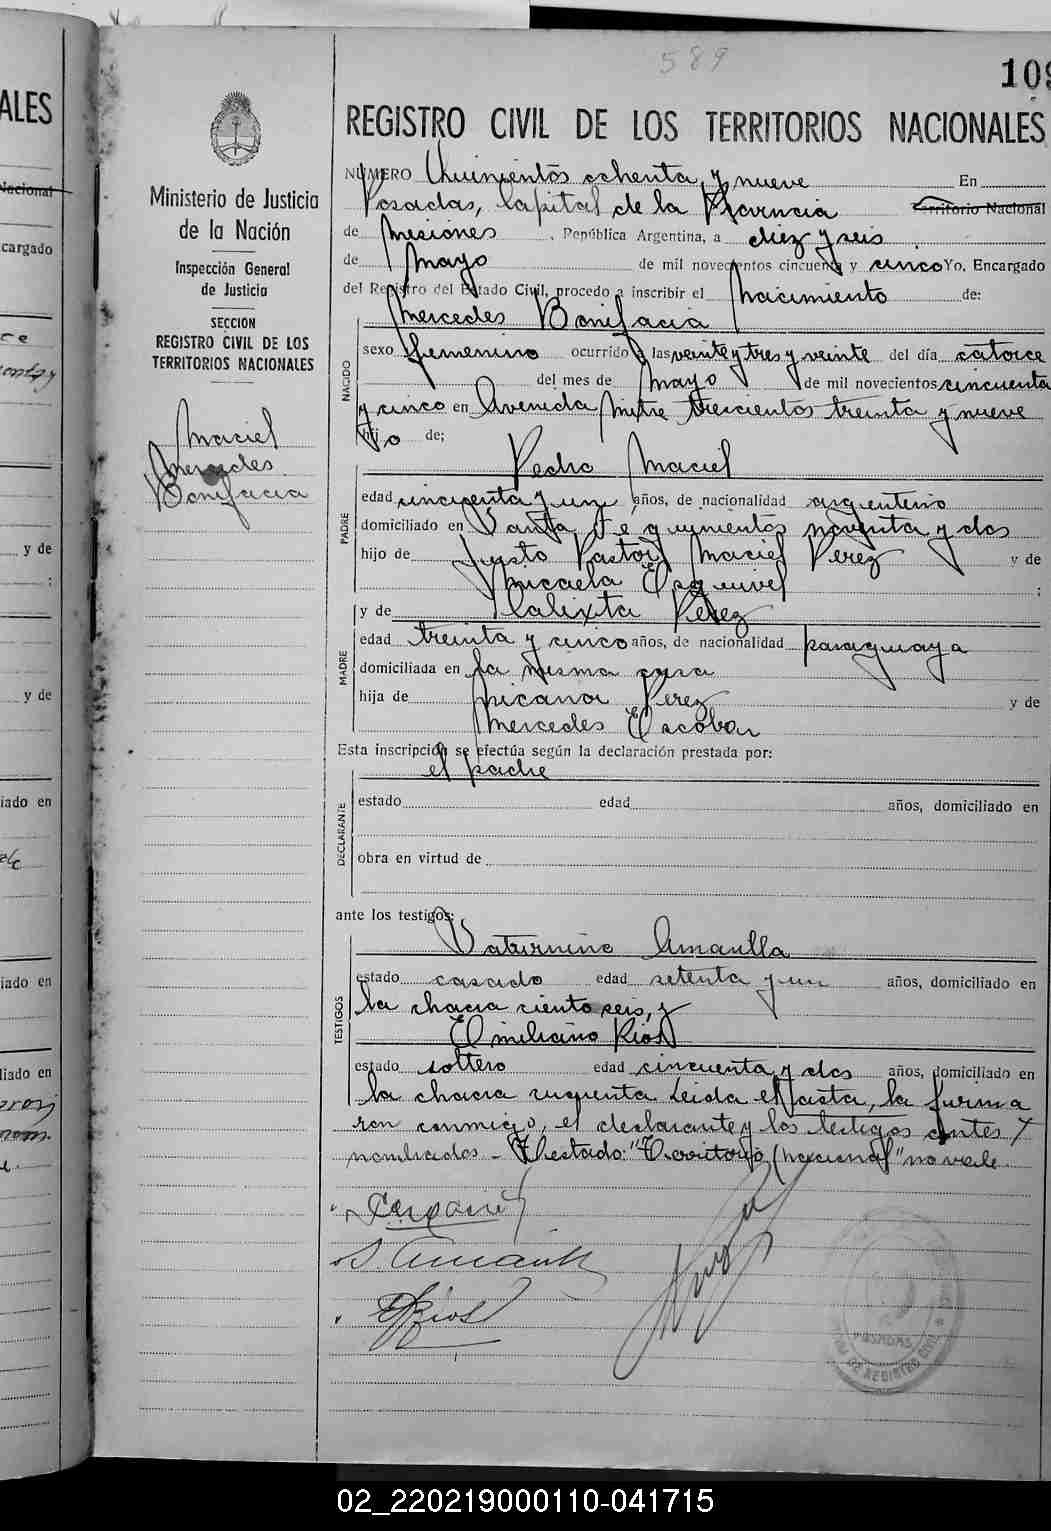 589
109
ALES
Nacional
cargado
y de
:
y de
iado en
iado en
liado en
Ministerio de Justicia
de la Nación
Inspección General
de Justicia
SECCION
REGISTRO CIVIL DE LOS
TERRITORIOS NACIONALES
Maciel
Mercedes
Bonifacia
REGISTRO CIVIL DE LOS TERRITORIOS NACIONALES
NUMERO Quinientos ochenta y nueve En
Posadas, Capital de la Provincia Territorio Nacional
de Misiones, República Argentina, a diez y seis
de Mayo de mil novecientos cincuenta y cinco Yo, Encargado
del Registro del Estado Civil, procedo a inscribir el Nacimiento de:
Mercedes Bonifacia
NACIDO
sexo femenino ocurrido a las veinte y tres y veinte del día catorce
del mes de Mayo de mil novecientos cincuenta
y cinco en Avenida Mitre trescientos treinta y nueve
hijo de;
Pedro Maciel
PADRE
edad cincuenta y un años, de nacionalidad argentino
domiciliado en Santa Fé quinientos noventa y dos
hijo de Justo Pastor Maciel Perez y de
Micaela Esquivel ;
y de Calixta Perez
MADRE
edad treinta y cinco años, de nacionalidad paraguaya
domiciliada en la misma casa
hija de Nicanor Perez y de
Mercedes Escobar
Esta inscripción se efectúa según la declaración prestada por:
el padre
DECLARANTE
estado edad años, domiciliado en
obra en virtud de
ante los testigos:
Saturnino Amarilla
TESTIGOS
estado casado edad setenta y un años, domiciliado en
la chacra ciento seis, y
Emiliano Rios
estado soltero edad cincuenta y dos años, domiciliado en
la chacra cincuenta Leida el acta, la firma
ron conmigo, el declarante y los testigos antes
nombrados - Testado: "Territorio Nacional" no vale.
S. Amarilla
E Rios
POSADAS
DE REGISTRO CIVIL
02_220219000110-041715